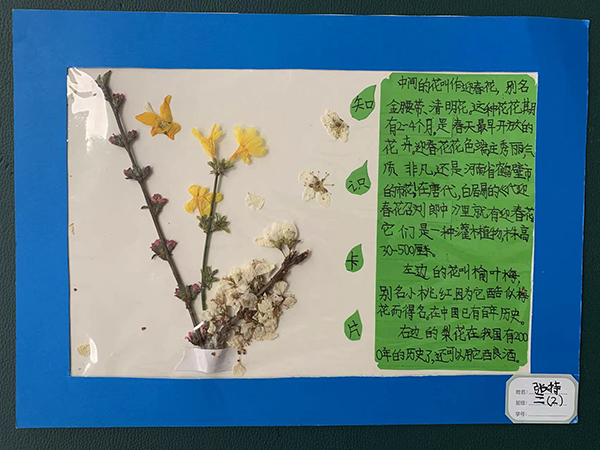 知
识
卡
片
中间的花叫作迎春花,别名
金腰带、清明花,这种花花期
有2-4个月,是春天最早开放的
花卉,迎春花花色端庄秀丽气
质非凡,还是河南省鹤壁市
的市花,在唐代,白居易的《代迎
春花召刘郎中》里就有迎春花
它们是一种灌木植物,株高
30-500厘米。
左边的花叫榆叶梅,
别名小桃红,因为它酷似梅
花而得名,在中国已有百年历史。
右边的梨花在我国有200
0年的历史了,还可以用它酉良酒。
姓名:
班级:二(2)
学号: